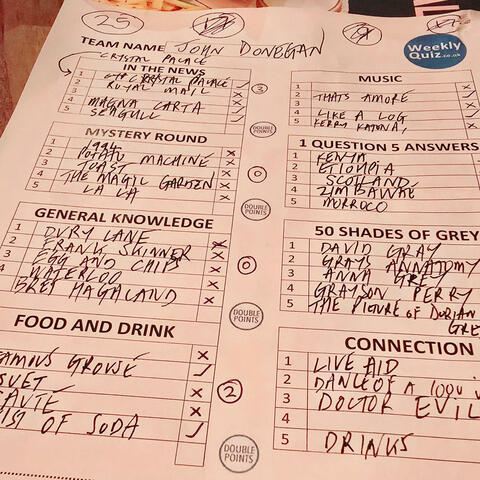 25
TEAM NAME JOHN DONEGAN
Weekly
Quiz.co.uk
CRYSTAL PALACE
IN THE NEWS
1 CRYSTAL PALACE
2 ROYAL MAIL
3
4 MAGNA CARTA
5 SEAGULL
3
DOUBLE POINTS
MUSIC
1
2 THATS AMORE
3
4 LIKE A LOG
5 KERRY KATONA,
MYSTERY ROUND
1 1994
2 POTATO MACHINE
3 TOAST
4 THE MAGIC GARDEN
5 LA LA
0
DOUBLE POINTS
1 QUESTION 5 ANSWERS
1 KENYA
2 ETIOUPIA
3 SCOTLAND
4 ZIMBAWAE
5 MORROCO
GENERAL KNOWLEDGE
1 DURY LANE
2 FRANK SKINNER
3 EGG AND CHIPS
4 WATERLOO
5 GREY HAGHLAND
0
DOUBLE POINTS
50 SHADES OF GREY
1 DAVID GRAY
2 GRAYS ANNATOMY
3 ANNA GREY
4 GRAYSON PERRY
5 THE PICTURE OF DORIAN
GREY
FOOD AND DRINK
FAMOUS GROUSE
SUET
SAUTE
OF SODA
2
DOUBLE POINTS
CONNECTION
1 LIVE AID
2 DANCE OF A 1000
3 DOCTOR EVIL
4
5 DRINKS